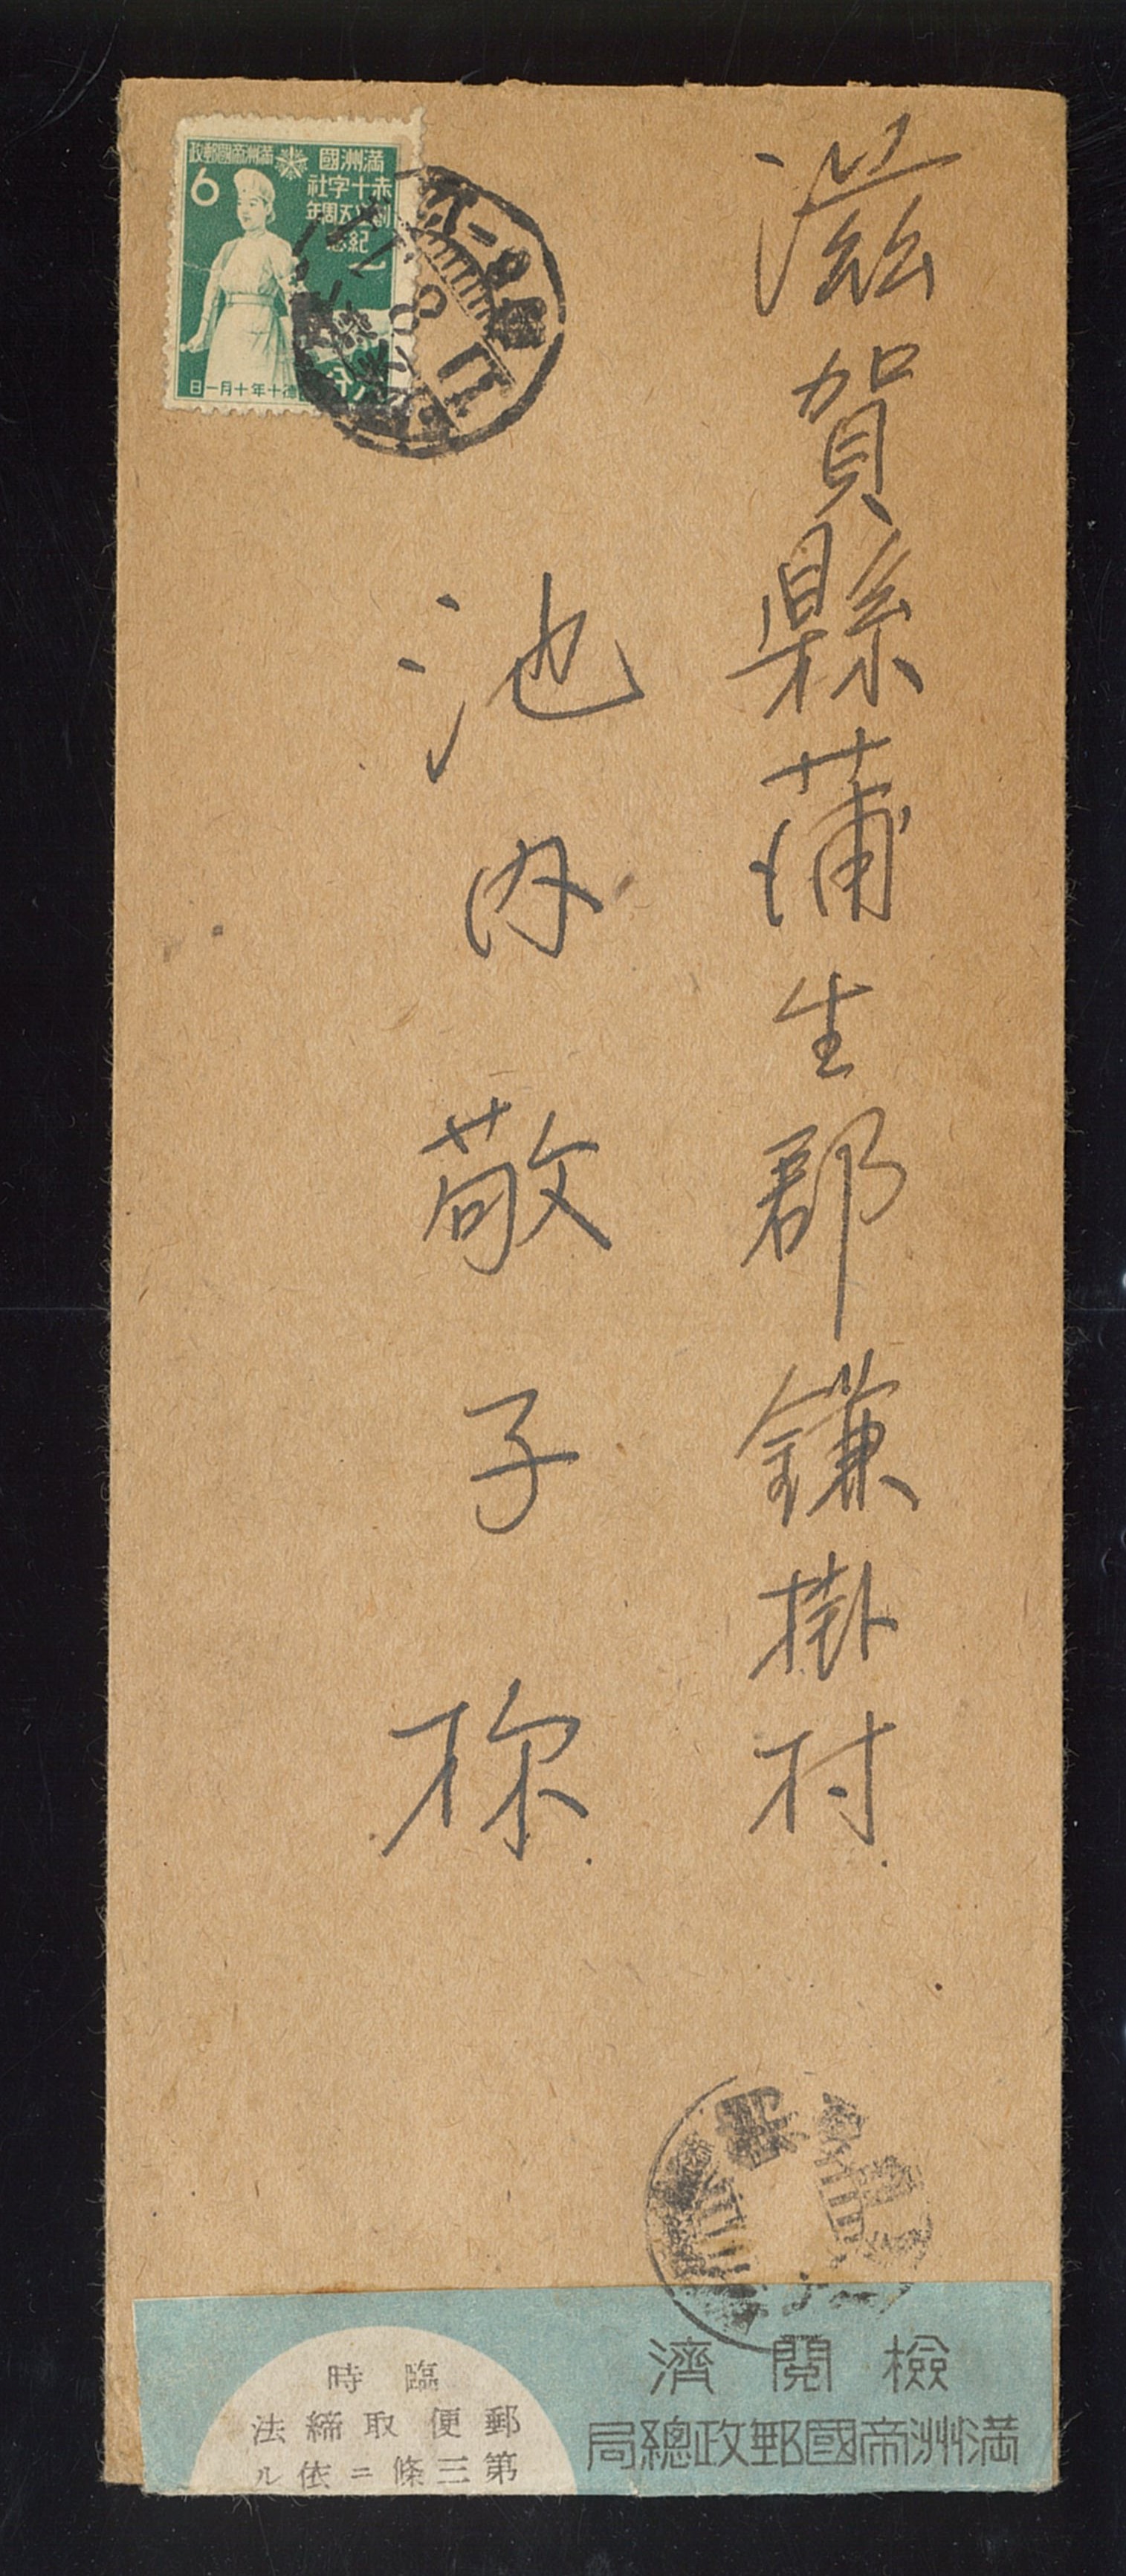 滋賀縣蒲生郡鎌掛村
池内敬子様
満洲帝國郵政
6
満洲國
赤十字社
創立五周年
紀念
康德十年十月一日
檢閱濟
満洲帝國郵政總局
臨時
郵便取締法
第三條ニ依ル